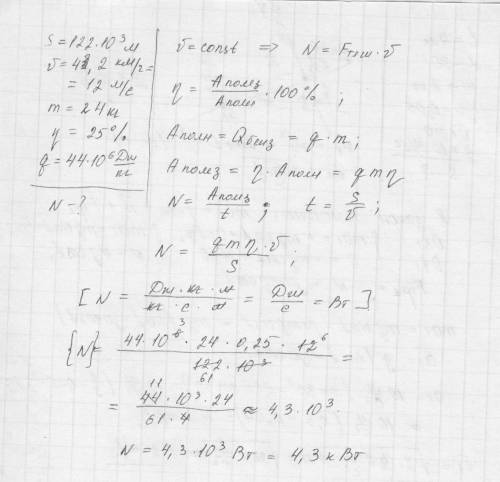 S = 122·10³ м
v = 43,2 км/ч =
= 12 м/с
m = 24 кг
η = 25%
q = 44·10⁶ Дж/кг
N – ?
v = const ⟹ N = Fтяги · v
η = Aполез / Aполн · 100% ;
Aполн = Qбенз = q · m ;
Aполез = η · Aполн = q m η
N = Aполез / t ; t = S / v ;
N = q m η · v / S ;
[ N = Дж · кг · м / кг · с · м = Дж / с = Вт ]
{N} = 44·10⁶ ³ · 24 · 0,25 · 12 ⁶ / 122 · 10³ 61 =
= 11 44·10³ · 24 / 61 · 4 ≈ 4,3·10³
N = 4,3·10³ Вт = 4,3 кВт